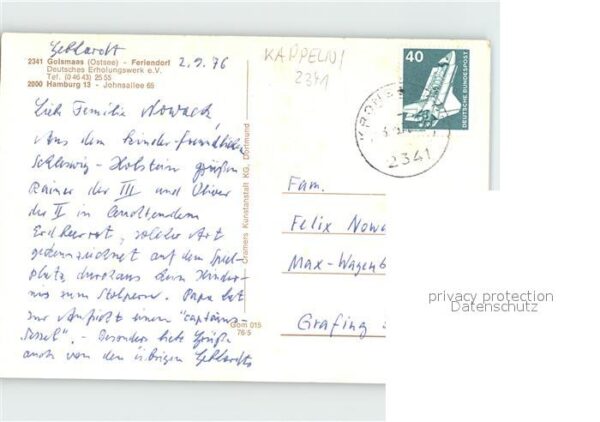 Gebhardt
2341 Golsmaas (Ostsee) - Feriendorf
Deutsches Erholungswerk e.V.
Tel. (0 46 43) 25 55
2000 Hamburg 13 - Johnsallee 65
2.9.76
KAPPELN/
2341
40
DEUTSCHE BUNDESPOST
2341
Liebe Familie Nowack,
Aus dem kinderfreundlichen
Schleswig-Holstein grüßen
Rainer der III und Oliver
der II in
solcher Art
auf dem Spiel-
platz durchaus kein Hinder-
nis zum Stolpern. Papa hat
zur Aufsicht einen "captains-
sessel". - Besonders liebe Grüße
auch von den übrigen Gebhardts
Cramers Kunstanstalt KG, Dortmund
Gom 015
76·5
Fam.
Felix Nowa
Max-Wagenb
Grafing
privacy protection
Datenschutz